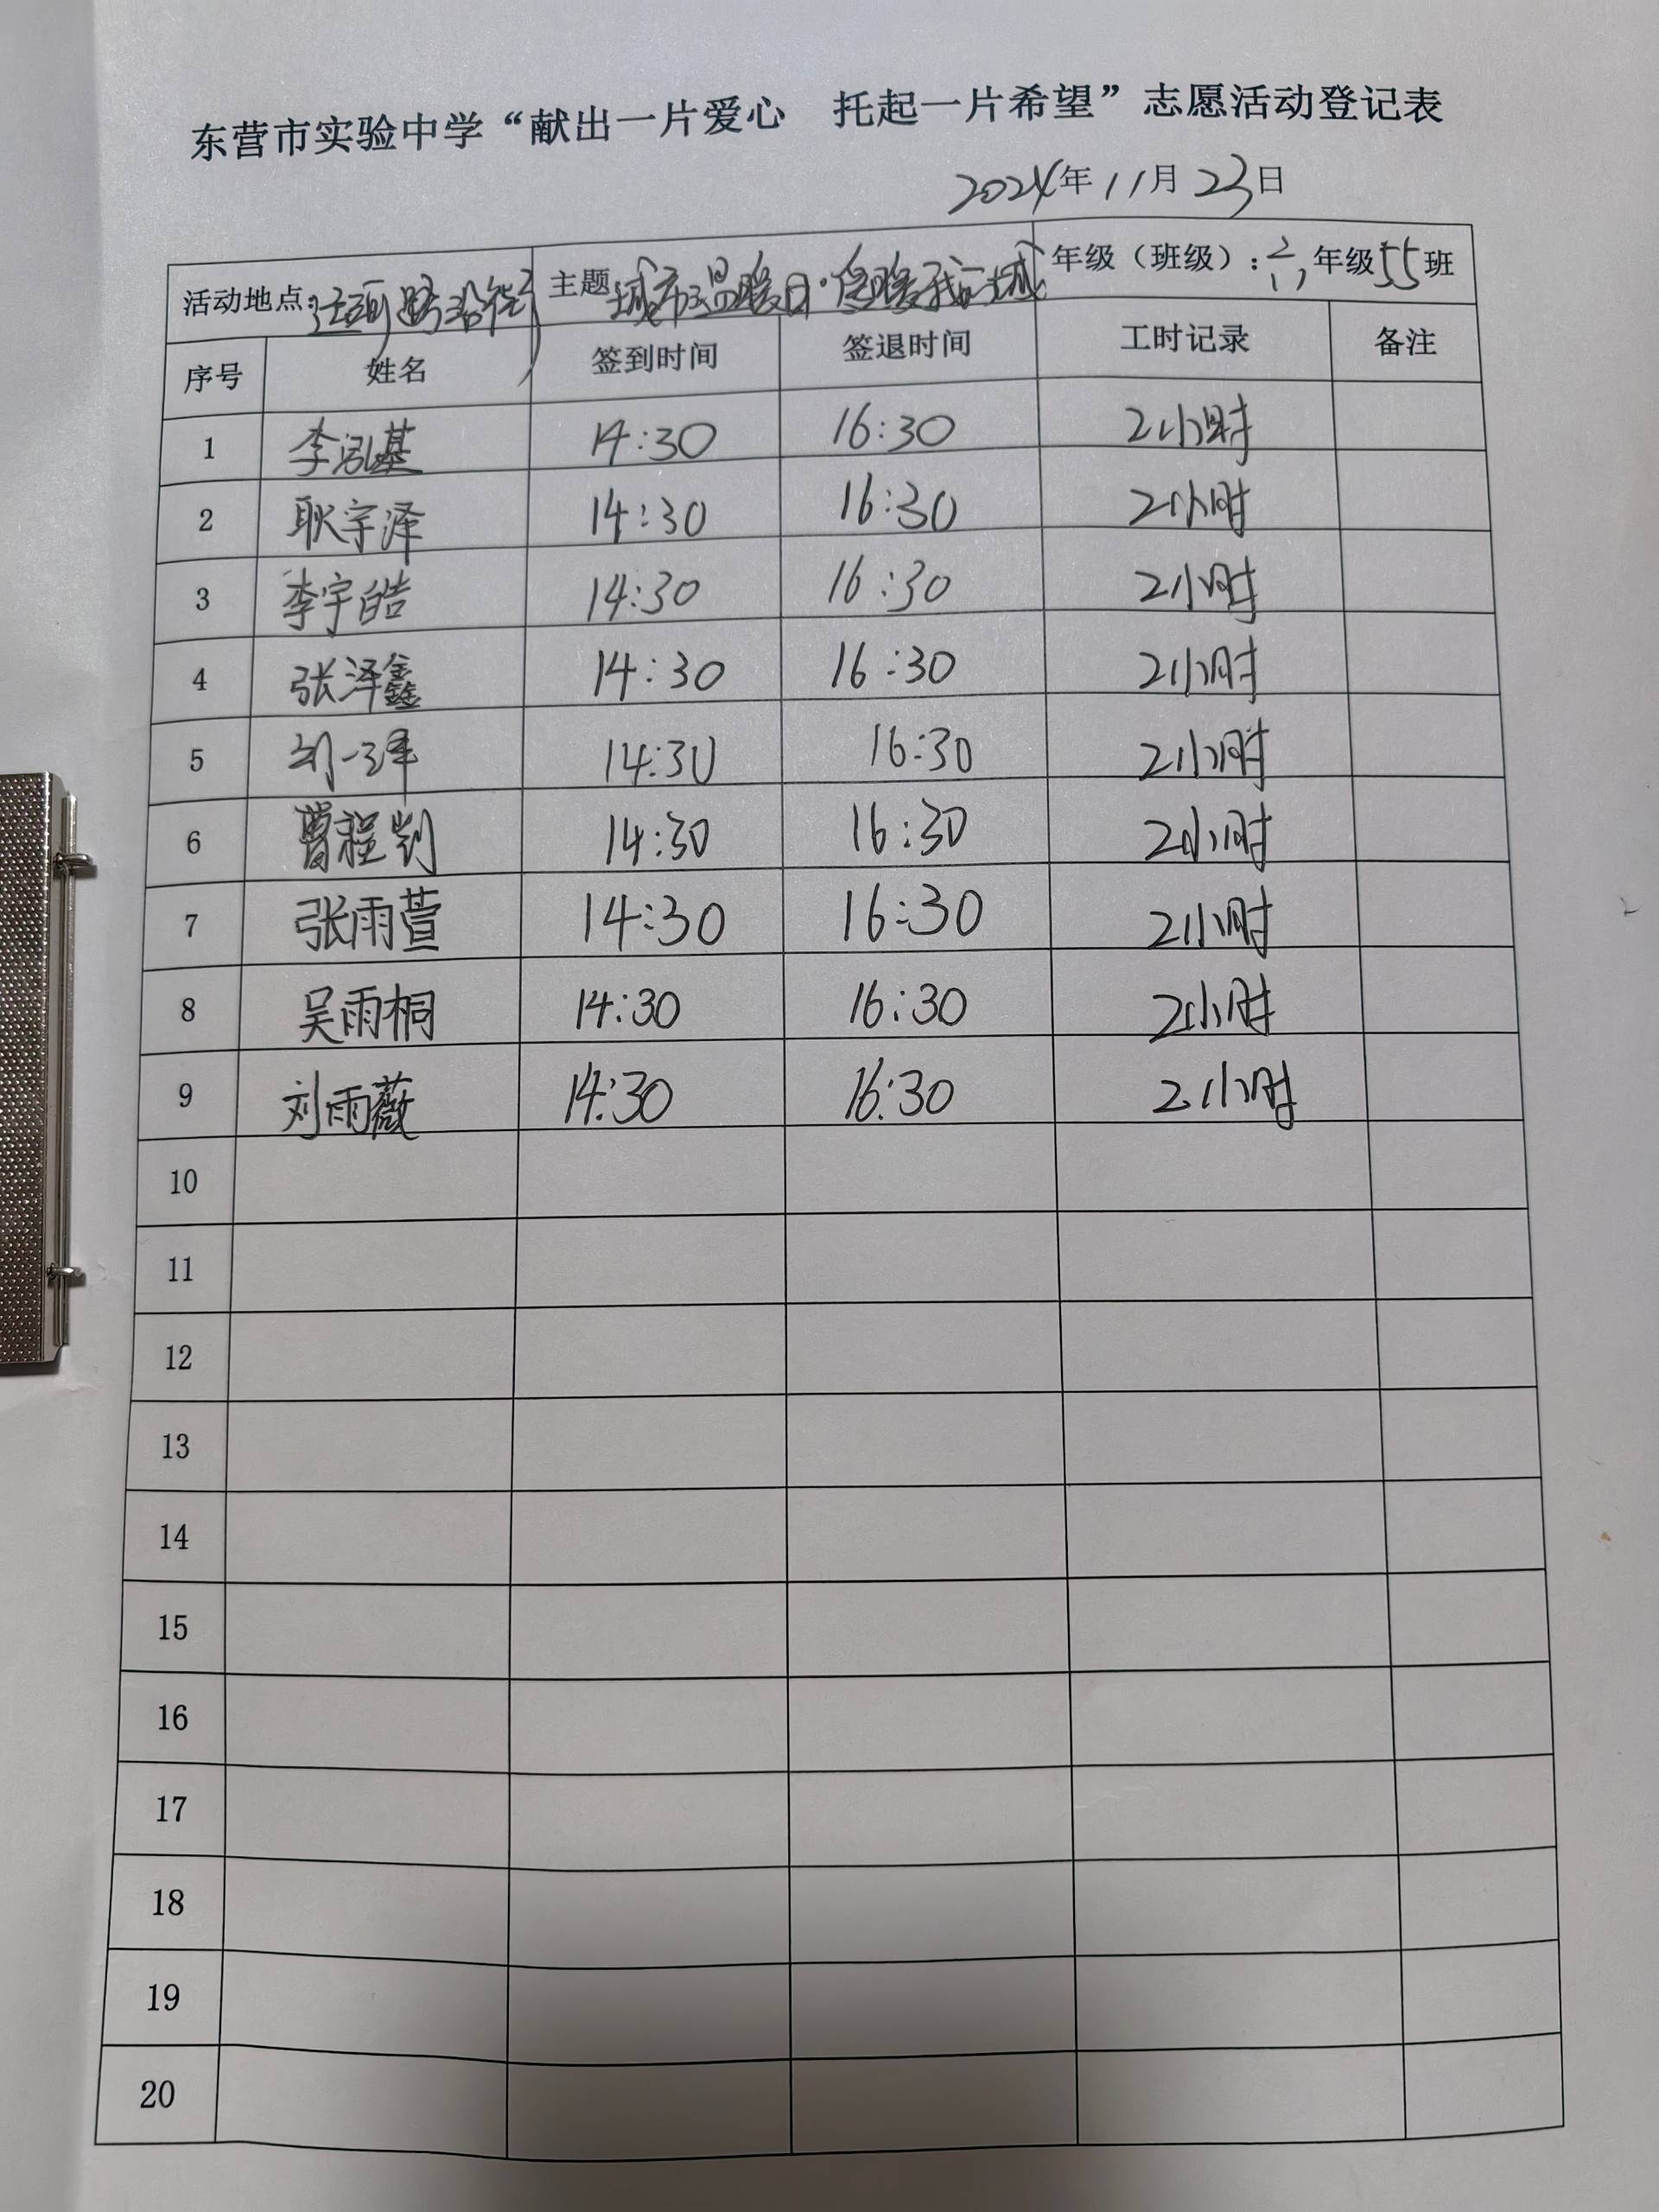 东营市实验中学“献出一片爱心 托起一片希望”志愿活动登记表
2024年11月23日
活动地点: 主题 城市温暖日· 年级（班级）：六年级55班
序号 姓名 签到时间 签退时间 工时记录 备注
1 李泓基 14:30 16:30 2小时
2 耿宇泽 14:30 16:30 2小时
3 李宇皓 14:30 16:30 2小时
4 张泽鑫 14:30 16:30 2小时
5 刘一泽 14:30 16:30 2小时
6 曾程 14:30 16:30 2小时
7 张雨萱 14:30 16:30 2小时
8 吴雨桐 14:30 16:30 2小时
9 刘雨薇 14:30 16:30 2小时
10
11
12
13
14
15
16
17
18
19
20